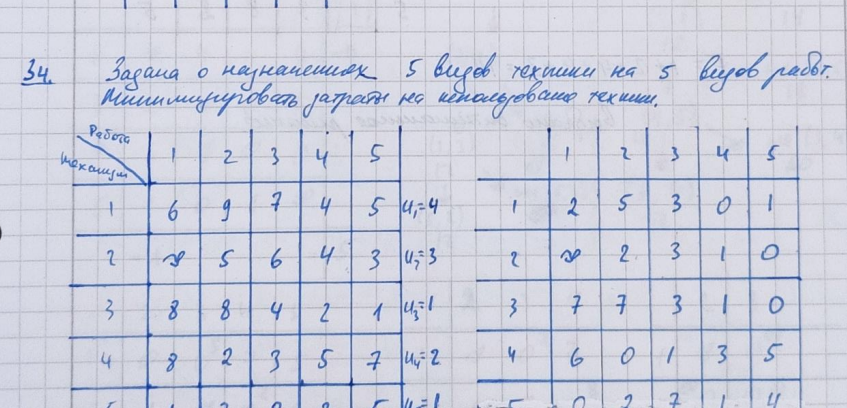 34. Задача о назначениях 5 видов техники на 5 видов работ.
Минимизировать затраты на использование техники.
Работа
Механизм
1 2 3 4 5
1 6 9 7 4 5 u₁=4
2 ∞ 5 6 4 3 u₂=3
3 8 8 4 2 1 u₃=1
4 8 2 3 5 7 u₄=2
1 2 3 4 5
1 2 5 3 0 1
2 ∞ 2 3 1 0
3 7 7 3 1 0
4 6 0 1 3 5